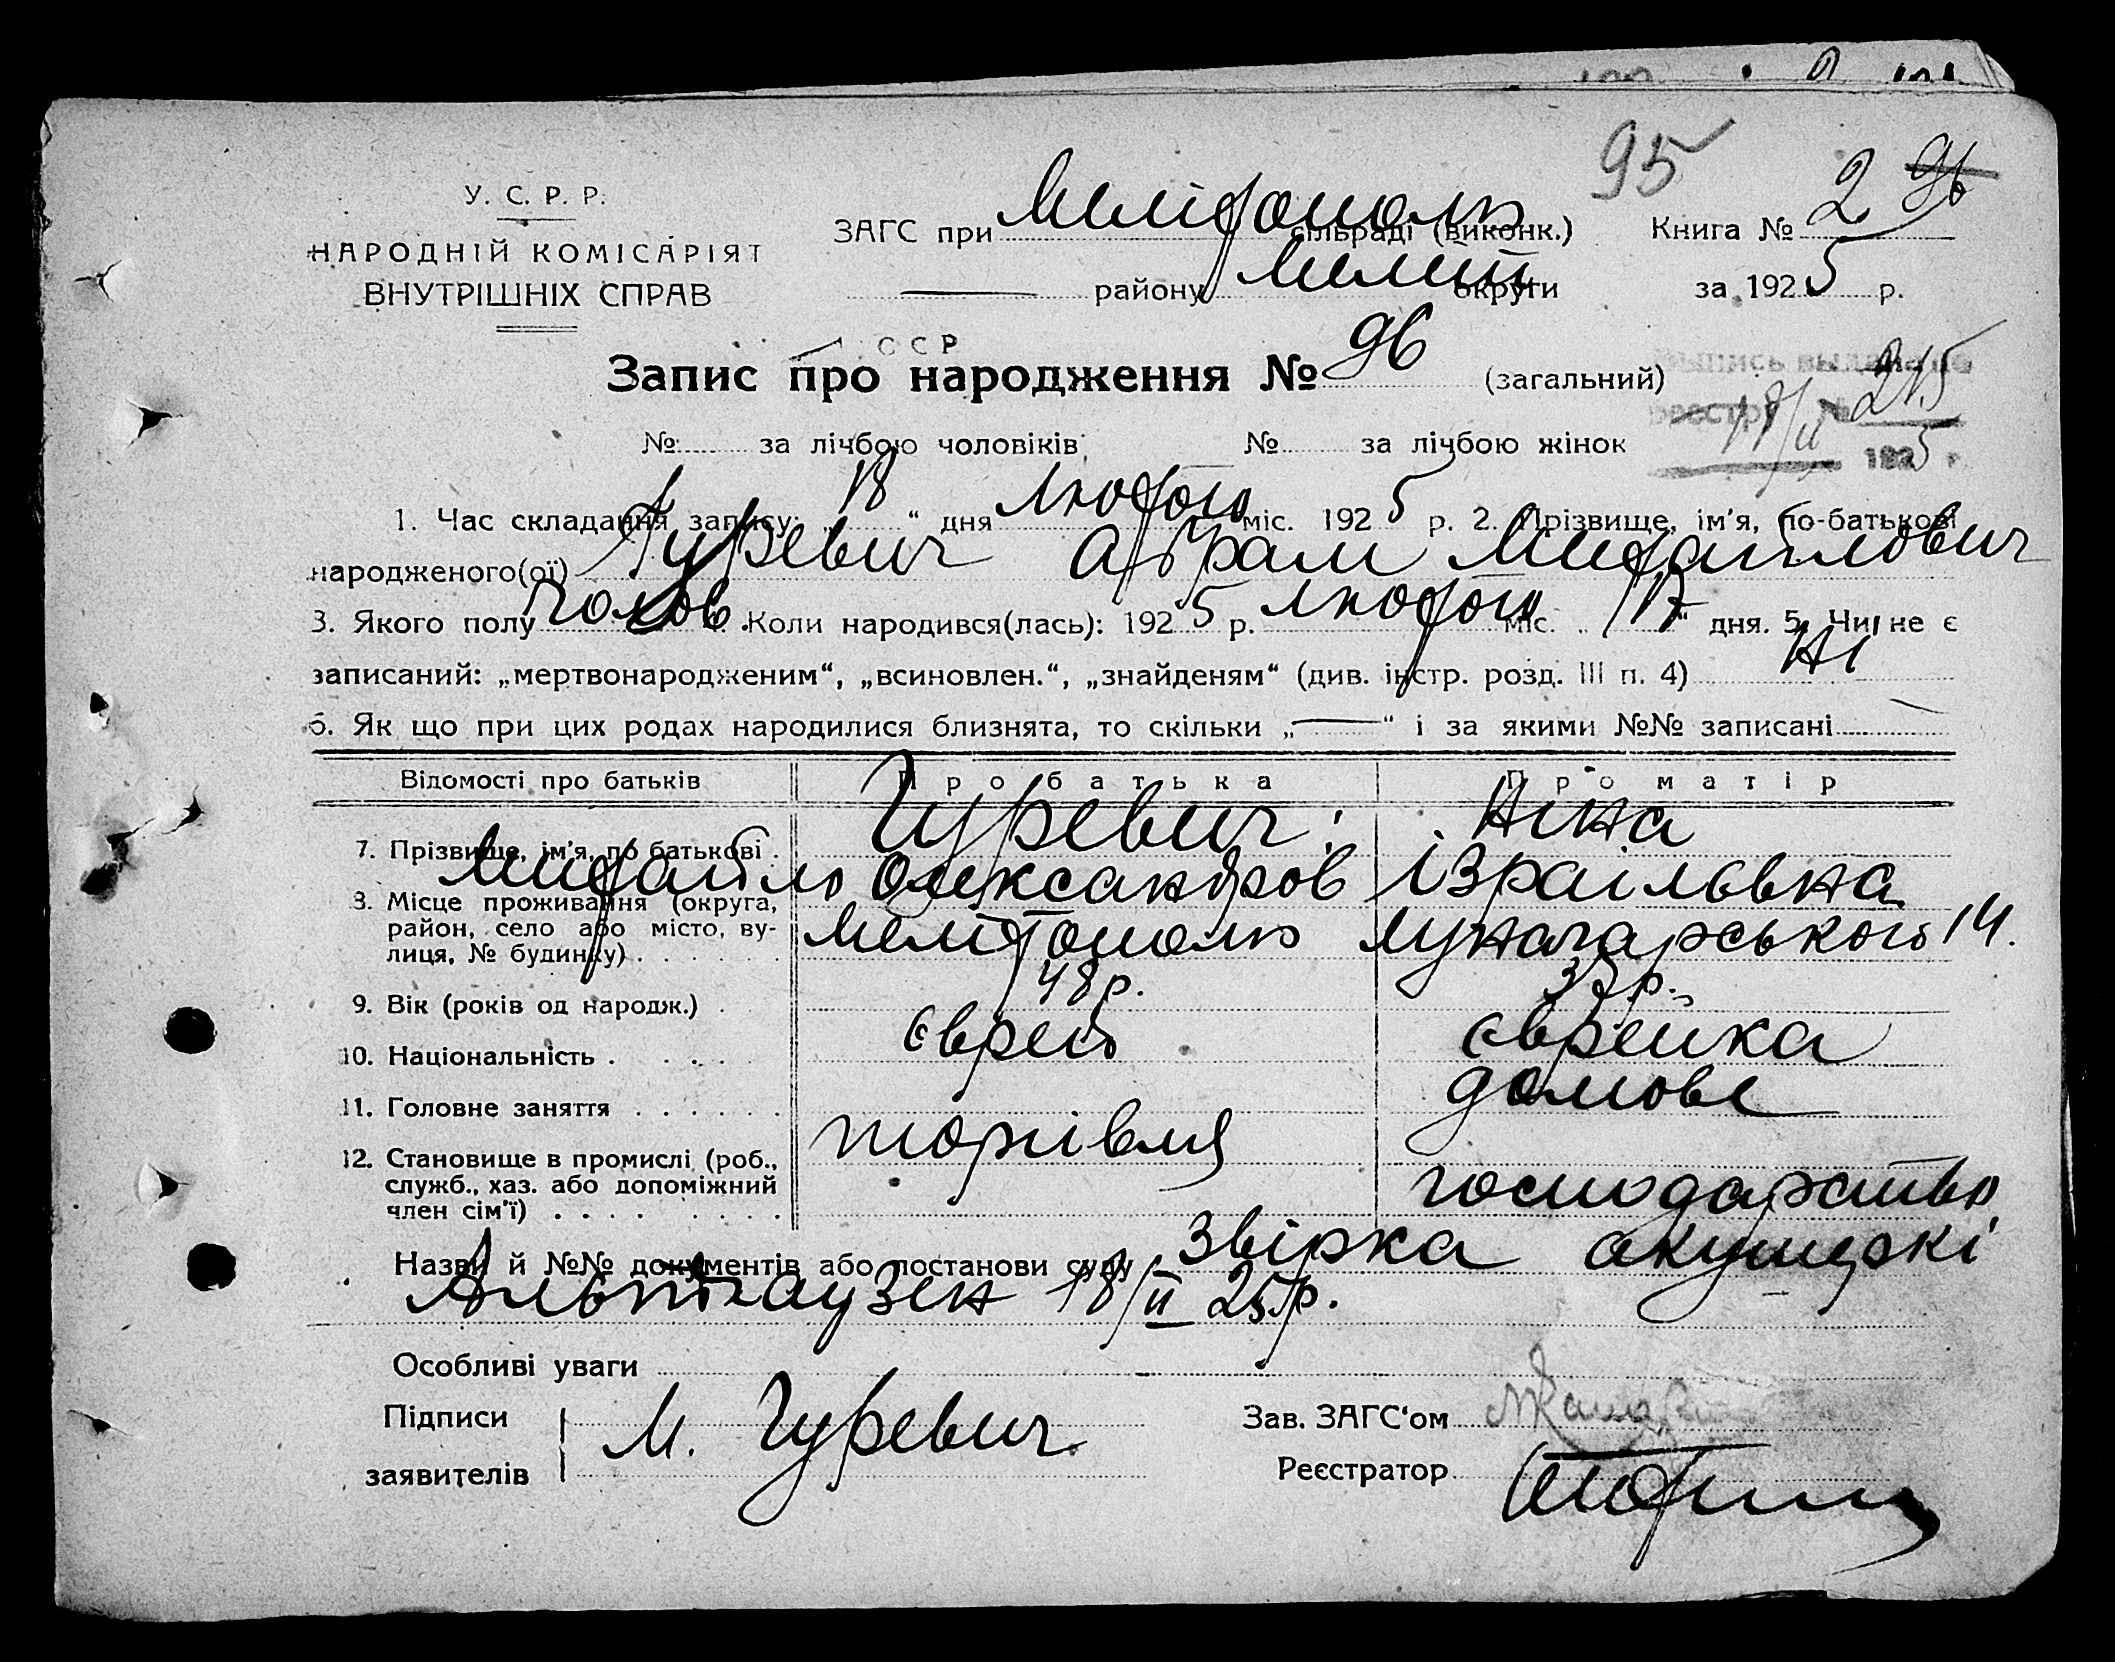 95
У. С. Р. Р.
НАРОДНІЙ КОМІСАРІЯТ
ВНУТРІШНІХ СПРАВ
ЗАГС при Мелітополь сільраді (виконк.) Книга № 2 96
району Меліт округи за 1925 р.
ССР
Запис про народження № 96 (загальний)
Выпись выдана по
реестру № 215
17/II 1925 г
№ за лічбою чоловіків № за лічбою жінок
1. Час складання запису: „18“ дня лютого міс. 1925 р. 2. Прізвище, ім'я, по-батькові
народженого(ої) Гуревич Абрам Михайлович
3. Якого полу чолов. Коли народився(лась): 1925 р. лютого міс. „17“ дня. 5. Чи не є
записаний: „мертвонародженим“, „всиновлен.“, „знайденям“ (див. інстр. розд. III п. 4) Ні
6. Як що при цих родах народилися близнята, то скільки „—“ і за якими №№ записані
Відомості про батьків Про батька Про матір
7. Прізвище, ім'я, по батькові Гуревич Ніна
Михайло Олександров Ізраїлівна
8. Місце проживання (округа, район, село або місто, вулиця, № будинку) Мелітополь Луначарського 14.
9. Вік (років од народж.) 48 р. 37 р.
10. Національність Єврей Єврейка
11. Головне заняття торгівля домове
12. Становище в промислі (роб., служб., хаз. або допоміжний член сім'ї) господарство
Назви й №№ документів або постанови суду Звірка акушеркі
Альтгаузен 18/II 25 р.
Особливі уваги
Підписи М. Гуревич Зав. ЗАГС'ом
заявителів Реєстратор